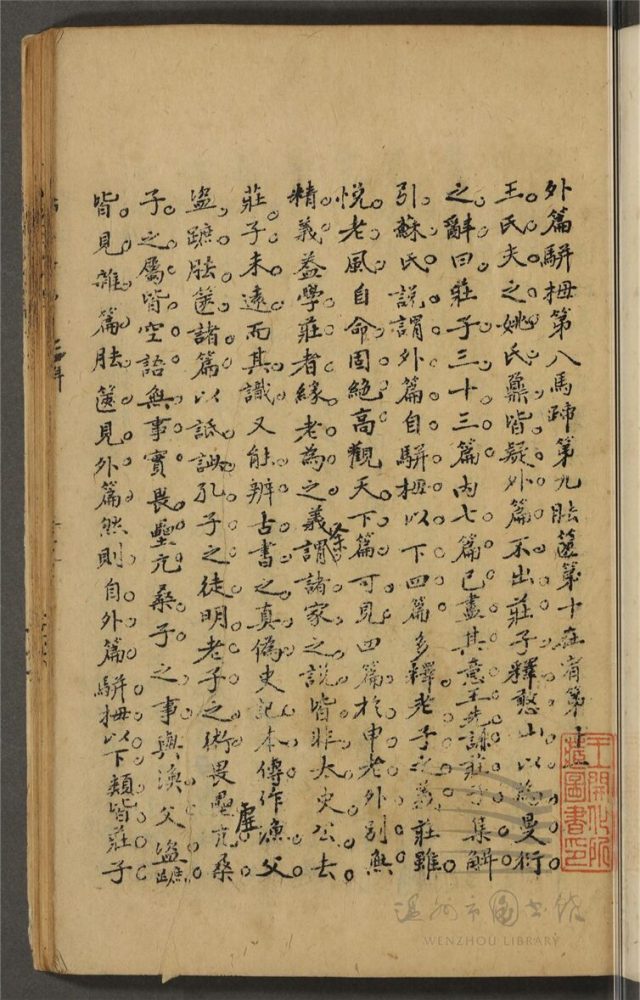 外篇駢拇第八馬蹄第九胠篋第十在宥第十一
王氏夫之姚氏鼐皆疑外篇不出莊子釋憨山以為曼衍
之辭曰莊子三十三篇內七篇已盡其意王先謙莊子集解
引蘇氏說謂外篇自駢拇以下四篇多釋老子之義莊雖
悅老風自命固絕高觀天下篇可見四篇於申老外別無
精義蓋學莊者緣老為之義棻謂諸家之說皆非太史公去
莊子未遠而其識又能辨古書之真偽史記本傳作漁父
盜蹠胠篋諸篇以詆訿孔子之徒明老子之術畏壘虛亢桑
子之屬皆空語無事實畏壘亢桑子之事與漁父盜蹠
皆見雜篇胠篋見外篇然則自外篇駢拇以下類皆莊子
溫州市圖書館
WENZHOU LIBRARY